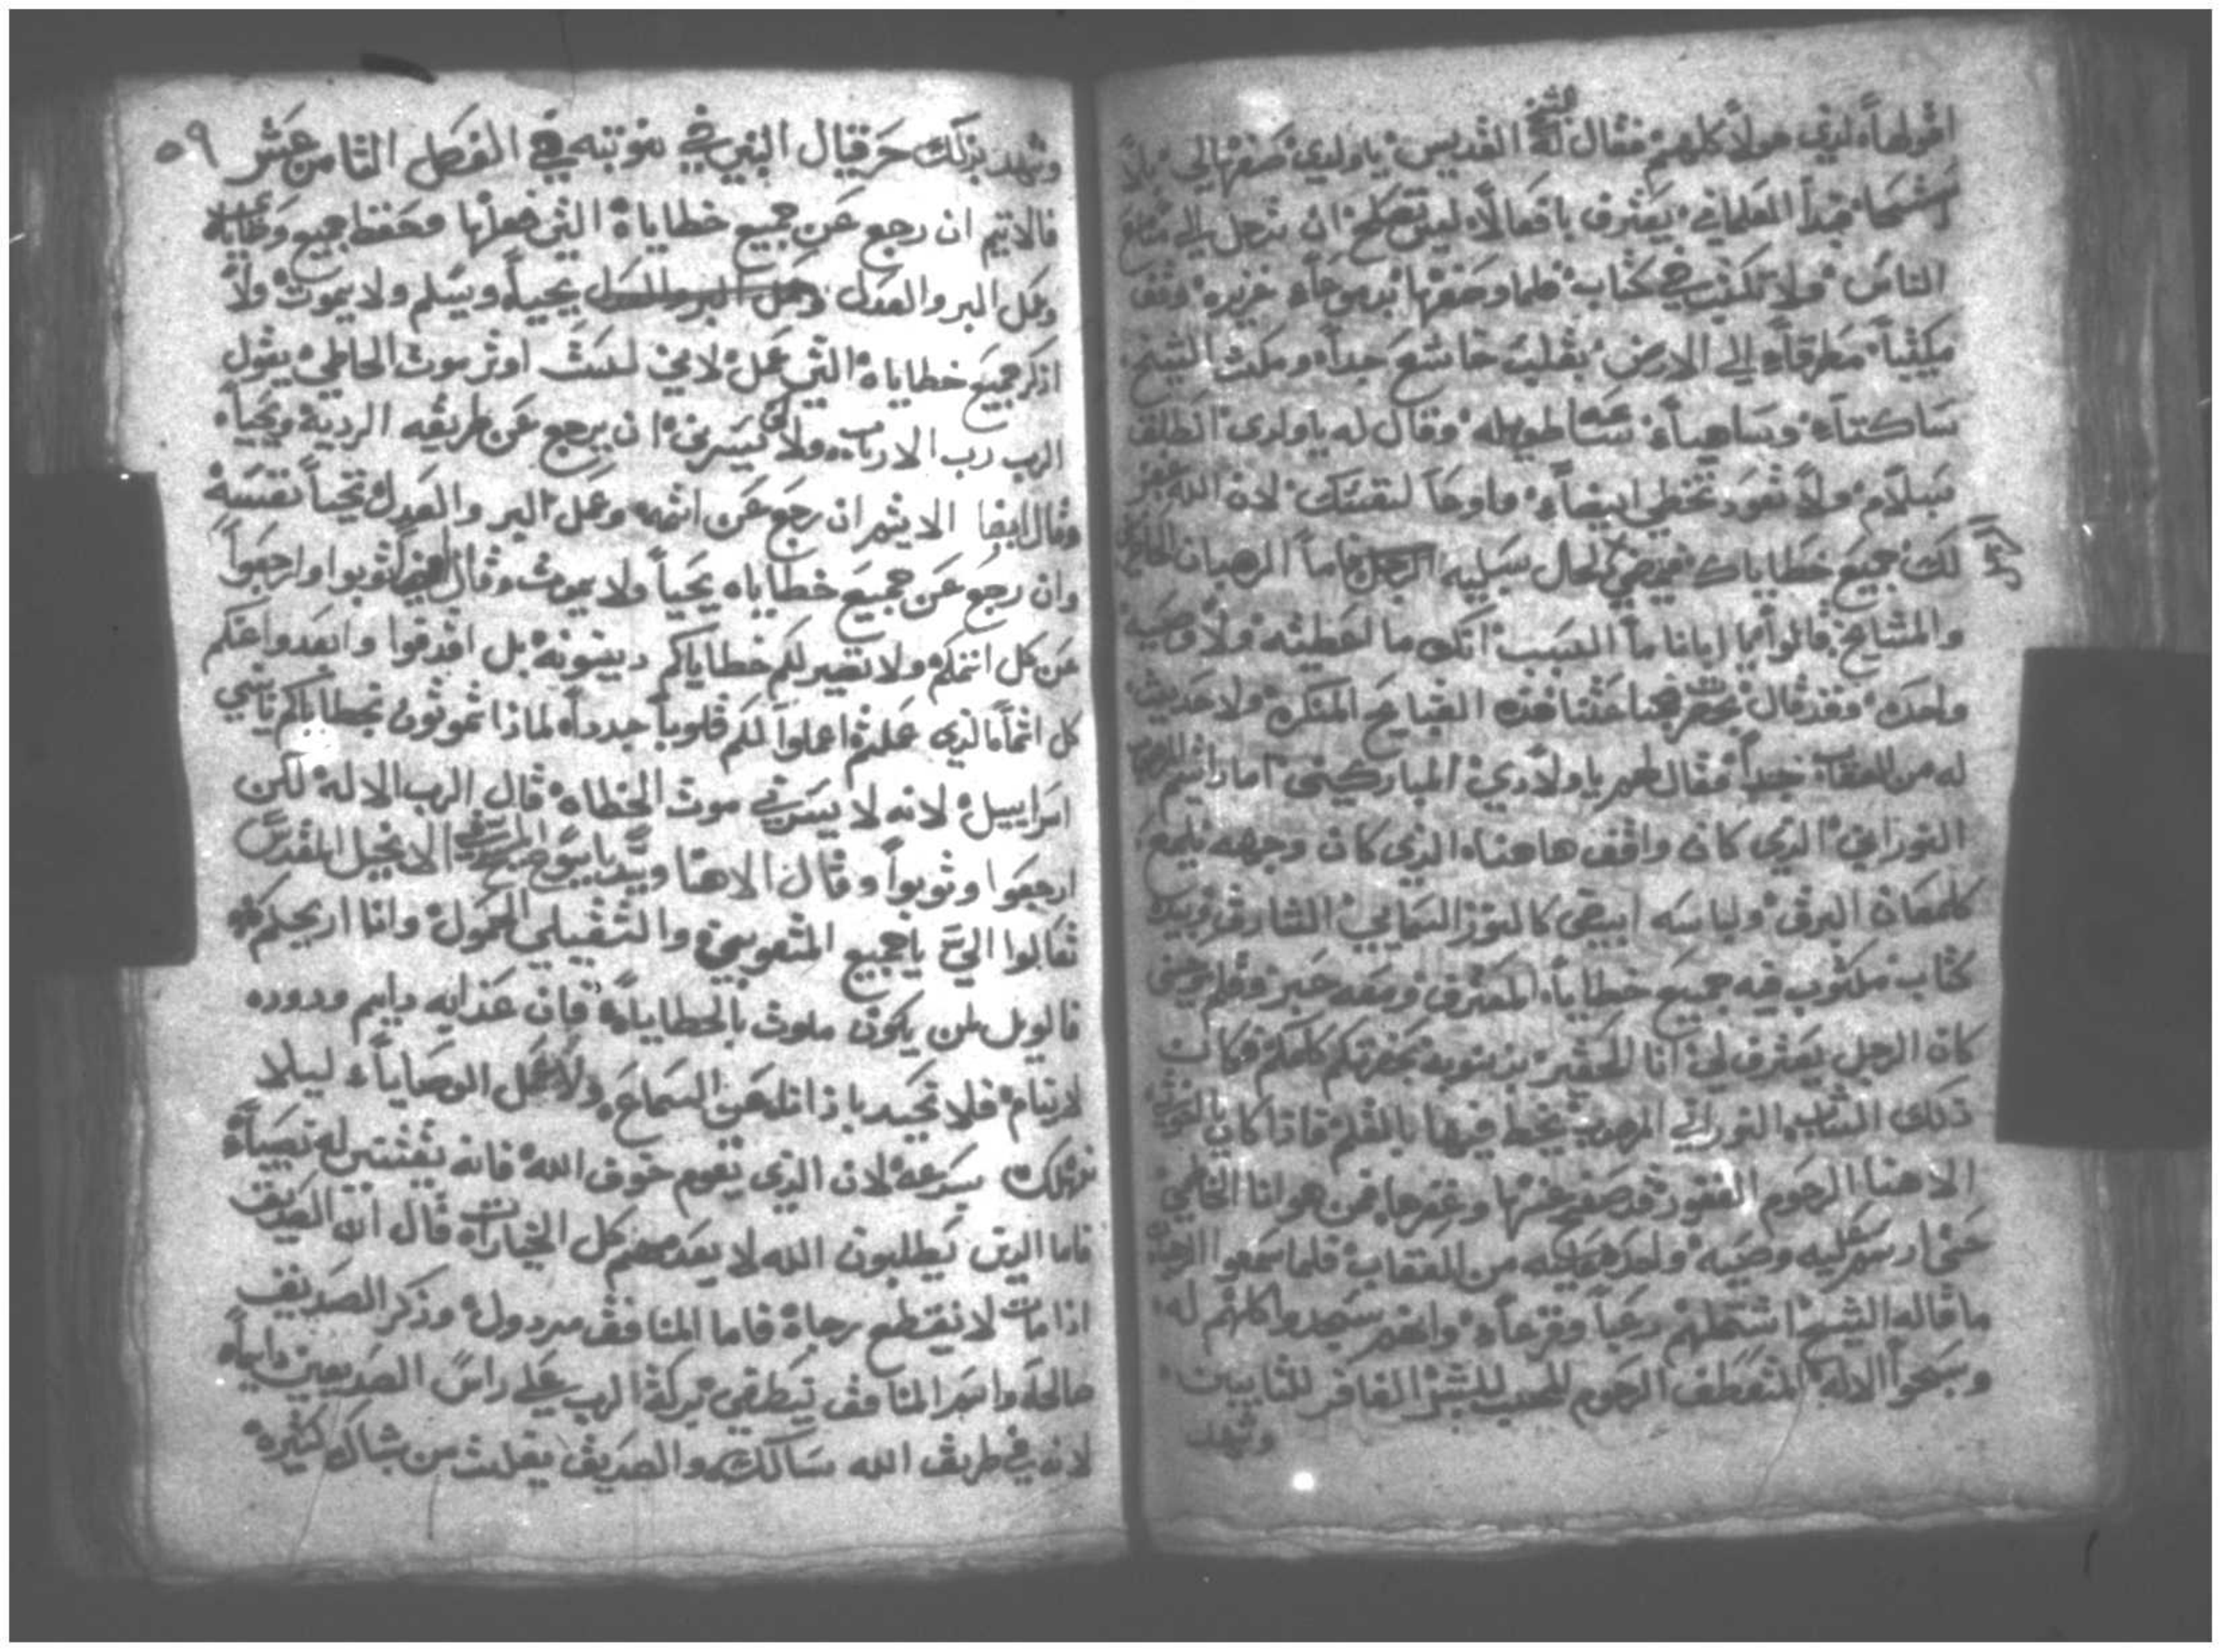 اقولها لدي هولا كلهم فقال له الشيخ القديس يا ولدي صفها لي بلا
جدا العلماني يعترف بافعالا ليس تصلح ان تدخل الي مسامع
الناس ولا تكتب في كتاب فلما وصفها بدموعا غزيره وقف
مطرقا الي الارض بقلب خاشع جدا ومكث الشيخ
ساكتا وساهيا ساعه طويله وقال له يا ولدي انطلق
بسلام ولا تعود تخطي ايضا لان الله غفر
لك جميع خطاياك فمضي لحال سبيله الرجل فاما الرهبان
والمشايخ قالوا يا ابانا ما السبب انك ما اعطيته ولا وصيه
واحده وقد قال بحضرتنا هذه القبايح المنكره ولا
له من العقاب جدا فقال لهم يا ولادي المباركين اما رايتم
النوراني الذي كان واقف هاهنا الذي كان وجهه يلمع
كلمعان البرق ولباسه ابيض كالنور السمايي الشارق وبيده
كتاب مكتوب فيه جميع خطايا المعترف ومعه حبر وقلم وحين
كان الرجل يعترف لي انا الحقير بذنوبه بحضرتكم كلكم فكان
ذلك الشاب النوراني يخط فيها بالقلم فاذا كان
الاهنا الرحوم الغفور قد صفح عنها وغفرها فمن هو انا الخاطي
حتي ارسم عليه وصيه واحده من العقاب فلما سمعوا
ما قاله الشيخ اشتملهم رعبا وفزعا وانهم سجدوا كلهم له
وسبحوا الاله المتعطف الرحوم المحب للبشر الغافر للتايبين
وشهد
٥٩
وشهد بذلك حزقيال النبي في نبوته في الفصل الثامن عشر
فالاثيم ان رجع عن جميع خطاياه التي فعلها وحفظ جميع وصاياه
وعمل البر والعدل يحيا ويسلم ولا يموت ولا
اذكر جميع خطاياه التي عمل لاني لست اوثر موت الخاطي يقول
الرب رب الارباب ولا يسرني ان يرجع عن طريقه الرديه ويحيا
وقال ايضا الاثيم ان رجع عن اثمه وعمل البر والعدل تحيا نفسه
وان رجع عن جميع خطاياه يحيا ولا يموت وقال ايضا توبوا وارجعوا
عن كل اثمكم ولا تصير لكم خطاياكم دينونه بل اقدفوا وابعدوا عنكم
كل اثما الذي عملتم اعملوا لكم قلوبا جددا لماذا تموتون بخطاياكم يا بني
اسراييل لانه لا يسرني موت الخطاه قال الرب الاله لكن
ارجعوا وتوبوا وقال الاهنا يسوع المسيح في الانجيل المقدس
تعالوا الي يا جميع المتعوبين والثقيلي الحمول وانا اريحكم
فالويل لمن يكون ملوث بالخطايا فان عذابه دايم ودوده
لا ينام فلا تحيد باذانك عن السماع ولا عمل الوصايا ليلا
تهلك بسرعه لان الذي يعوم خوف الله فانه
فاما الذين يطلبون الله لا يعدمهم كل الخيرات قال ان الصديق
اذا مات لا ينقطع رجاه فاما المنافق مردول وذكر الصديق
صالحه واسم المنافق ينطفي بركه الرب علي راس الصديقين دايما
لانه في طريق الله سالك والصديق يفلت من شباك كثيره